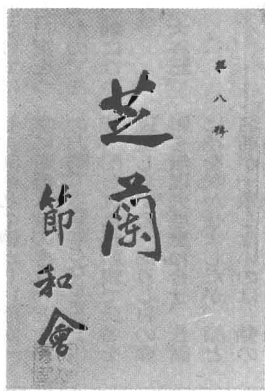 第八號
芝蘭
節和會